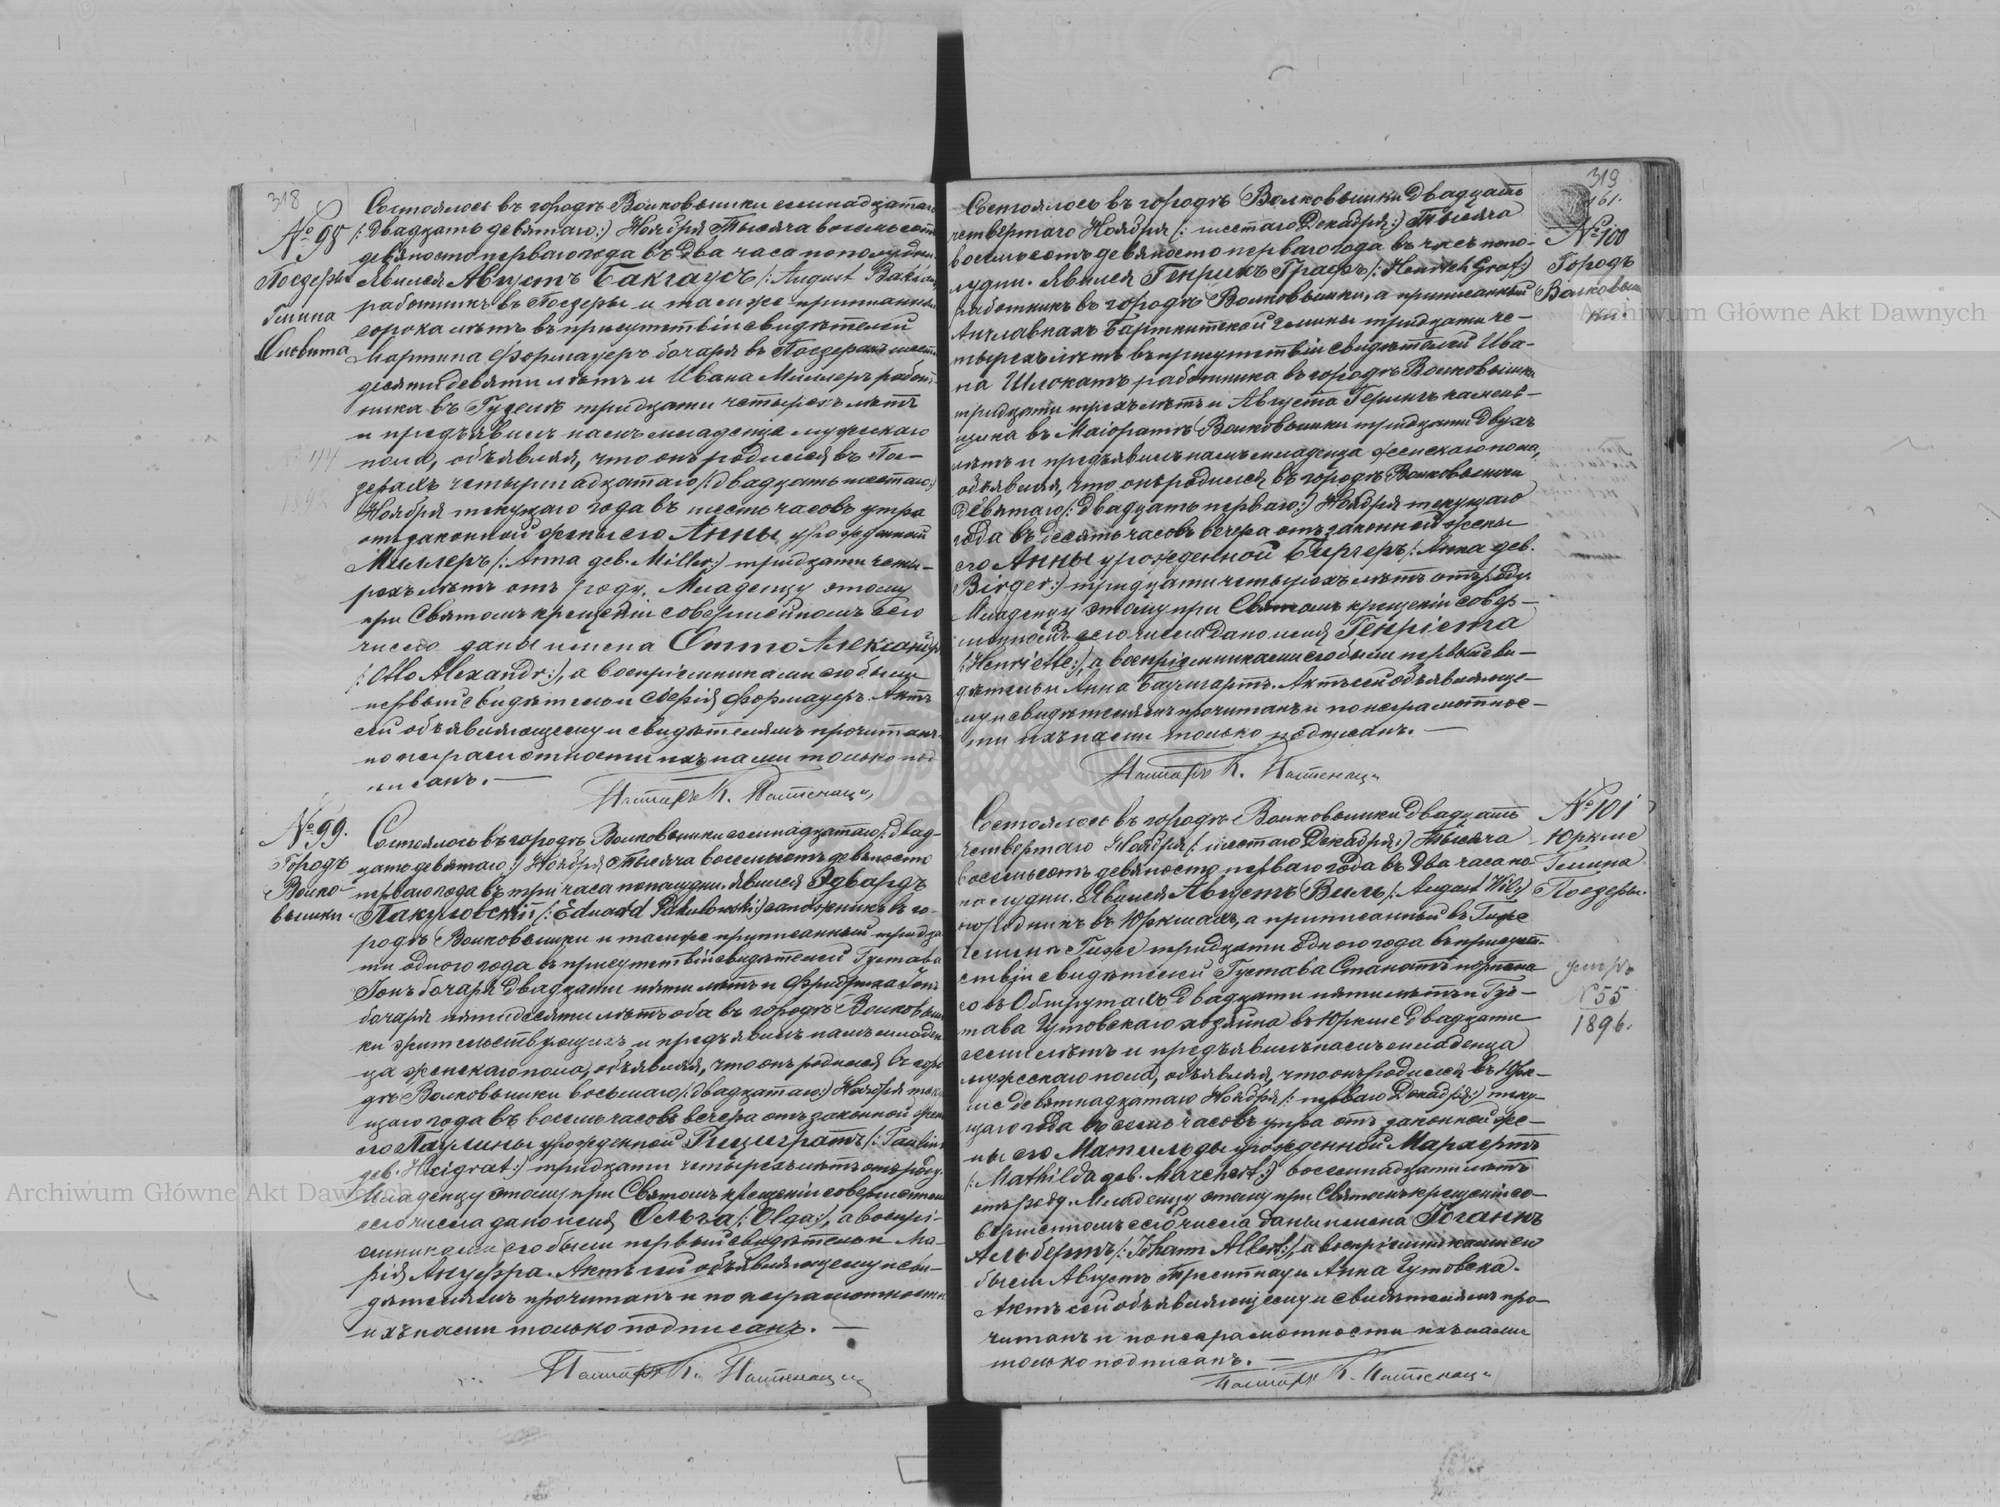 318
№ 98
Поезеры
Гмина
Состоялось въ городѣ Волковышки семнадцатаго
/: двадцать девятаго :/ Ноября Тысяча восемьсотъ
девяносто перваго года въ два часа пополудни.
Явился Августъ Бакгаусъ /: August
работникъ въ Поезеры и тамже приписанный
сорока лѣтъ въ присутствіи свидѣтелей
Мартина Формауеръ бочаря въ Поезерахъ шести
десяти девяти лѣтъ и Ивана Миллеръ работ-
ника въ тридцати четырехъ лѣтъ
и предъявилъ намъ младенца мужескаго
пола, объявляя, что онъ родился въ Пое-
зерахъ четырнадцатаго /: двадцать шестаго :/
Ноября текущаго года въ шесть часовъ утра
отъ законной жены его Анны урожденной
Миллеръ /: Anna дев. Miller :/ тридцати четы-
рехъ лѣтъ отъ роду. Младенцу этому
при Святомъ крещеніи совершенномъ сего
числа даны имена Отто Александръ
/: Otto Alexandr :/, а воспріемниками его были
первый свидѣтель и Формауеръ. Актъ
сей объявляющему и свидѣтелямъ прочитанъ
по неграмотности ихъ нами только под-
писанъ. —
Пасторъ К.
№ 99.
Городъ
Волко-
вышки
Состоялось въ городѣ Волковышки семнадцатаго /: двад-
цать девятаго :/ Ноября Тысяча восемьсотъ девяносто
перваго года въ три часа пополудни. Явился Эдвардъ
Пакуловскій /: Eduard Pakulowski :/ сапожникъ въ го-
родѣ Волковышки и тамже приписанный тридца-
ти одного года въ присутствіи свидѣтелей Густава
бочаря двадцати пяти лѣтъ и Фридриха
бочаря пятидесяти лѣтъ оба въ городѣ Волковыш-
ки жительствующихъ и предъявилъ намъ младен-
ца женскаго пола, объявляя, что онъ родился въ горо-
дѣ Волковышки восьмаго /: двадцатаго :/ Ноября теку-
щаго года въ восемь часовъ вечера отъ законной жены
его Паулины урожденной /: Paulina
дев. :/ тридцати четырехъ лѣтъ отъ роду.
Младенцу этому при Святомъ крещеніи совершенномъ
сего числа дано имя Ольга /: Olga :/, а воспрі-
емниками его были первый свидѣтель и Ма-
рія Актъ сей объявляющему и сви-
дѣтелямъ прочитанъ и по неграмотности
ихъ нами только подписанъ. —
Пасторъ К.
319
161.
№ 100
Городъ
Волковыш-
ки.
Состоялось въ городѣ Волковышки двадцать
четвертаго Ноября /: шестаго Декабря :/ Тысяча
восемьсотъ девяносто перваго года въ часъ попо-
лудни. Явился Генрихъ Графъ /: Heinrich Graf :/
работникъ въ городѣ Волковышки, а приписанный
Бартнитской гмины тридцати че-
тырехъ лѣтъ въ присутствіи свидѣтелей Ива-
на работника въ городѣ Волковышки
тридцати трехъ лѣтъ и Августа Герингъ каменъ-
щика въ Маіоратѣ Волковышки тридцати двухъ
лѣтъ и предъявилъ намъ младенца женскаго пола,
объявляя, что онъ родился въ городѣ Волковышки
девятаго /: двадцать перваго :/ Ноября текущаго
года въ десять часовъ вечера отъ законной жены
его Анны урожденной Биргеръ /: Anna дев.
Birger :/ тридцати четырехъ лѣтъ отъ роду.
Младенцу этому при Святомъ крещеніи совер-
шенномъ сего числа дано имя Генріета
/: Henriette :/, а воспріемниками его были первый сви-
дѣтель и Анна Баумгартъ. Актъ сей объявляюще-
му и свидѣтелямъ прочитанъ и по неграмотнос-
ти ихъ нами только подписанъ. —
Пасторъ К.
№ 101
Юркше
Гмина
Поезеры.
умеръ
№ 55
1896.
Состоялось въ городѣ Волковышки двадцать
четвертаго Ноября /: шестаго Декабря :/ Тысяча
восемьсотъ девяносто перваго года въ два часа по-
полудни. Явился Августъ Виль /: August Wil :/
въ Юркшахъ, а приписанный въ Гиже
гмины Гиже тридцати одного года въ присут-
ствіи свидѣтелей Густава портна-
го въ двадцати пяти лѣтъ и Гус-
тава Гутовскаго хозяина въ Юркше двадцати
семи лѣтъ и предъявилъ намъ младенца
мужескаго пола, объявляя, что онъ родился въ Юрк-
ше девятнадцатаго Ноября /: перваго Декабря :/ теку-
щаго года въ семь часовъ утра отъ законной же-
ны его Матильды урожденной Мархертъ
/: Mathilda дев. Marchert :/ восемнадцати лѣтъ
отъ роду. Младенцу этому при Святомъ крещеніи со-
вершенномъ сего числа даны имена Іоганнъ
Альбертъ /: Johann Albert :/, а воспріемниками его
были Августъ и Анна Гутовска.
Актъ сей объявляющему и свидѣтелямъ про-
читанъ и по неграмотности ихъ нами
только подписанъ. —
Пасторъ К.
Archiwum Główne Akt Dawnych
Archiwum Główne Akt Dawnych